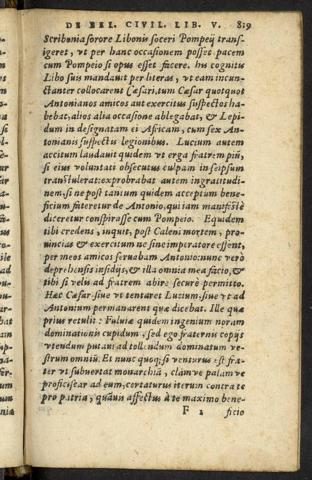 DE BEL. CIVIL. LIB. V. 819
Scribonia sorore Libonis soceri Pompeij transi-
geret, vt per hanc occasionem posset pacem
cum Pompeio si opus esset facere. his cognitis
Libo suis mandauit per literas, vt eam incun-
ctanter collocarent Cæsari, tum Cæsar quotquot
Antonianos amicos aut exercitus suspectos ha-
bebat, alios alia occasione ablegabat, & Lepi-
dum in designatam ei Africam, cum sex An-
tonianis suspectis legionibus. Lucium autem
accitum laudauit quidem vt erga fratrem piũ,
si eius voluntati obsecutus culpam in seipsum
transtulerat: exprobrabat autem ingratitudi-
nem, si ne post tantum quidem acceptum bene-
ficium fateretur de Antonio, qui iam manifestè
diceretur conspirasse cum Pompeio. Equidem
tibi credens, inquit, post Caleni mortem, pro-
uincias & exercitum ne sine imperatore essent,
per meos amicos seruabam Antonio: nunc verò
deprehensis insidijs, & illa omnia mea facio, &
tibi si velis ad fratrem abire securè permitto.
Hæc Cæsar siue vt tentaret Lucium, siue vt ad
Antonium permanarent quæ dicebat. Ille quæ
prius retulit: Fuluiæ quidem ingenium noram
dominationis cupidum, sed ego fraternis copijs
vtendum putaui ad tollendum dominatum ve-
strum omniũ: Et nunc quoq; si venturus est fra-
ter vt subuertat monarchiã, clàm ve palàm ve
proficiscar ad eum, certaturus iterum contra te
pro patria, quãuis affectus à te maximo bene-
F 2 ficio